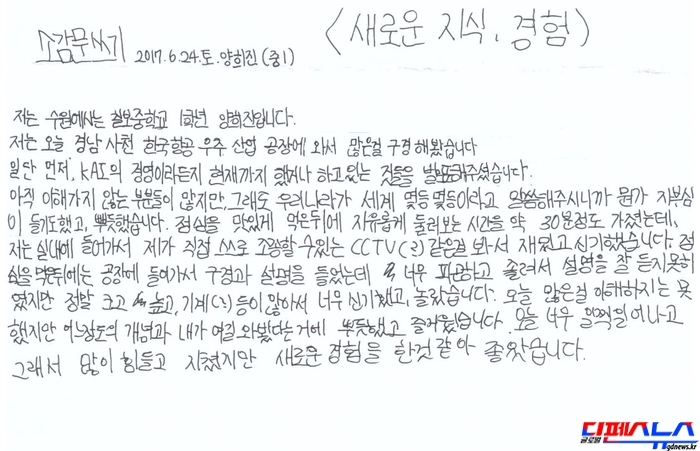 소감문쓰기
2017.6.24.토.양희진(중1)
<새로운 지식, 경험>
저는 수원에사는 칠보중학교 1학년 양희진입니다.
저는 오늘 경남 사천 한국항공 우주 산업 공장에 와서 많은걸 구경해봤습니다
일단 먼저, KAI의 경영이라든지 현재까지 했거나 하고있는 것들을 발표해주셨습니다.
아직 이해가지 않는 부분들이 많지만, 그래도 우리나라가 세계 몇등 몇등이라고 말씀해주시니까 뭔가 자부심
이 들기도했고, 뿌듯했습니다. 점심을 맛있게 먹은뒤에 자유롭게 둘러보는 시간을 약 30분정도 가졌는데,
저는 실내에 들어가서 제가 직접 스스로 조종할 수있는 CCTV(?) 같은걸 봐서 재밌고 신기했습니다. 점
심을 먹은뒤에는 공장에 들어가서 구경과 설명을 들었는데 너무 피곤하고 졸려서 설명을 잘 듣지못하
였지만 정말 크고 높고, 기계(?) 등이 많아서 너무 신기했고, 놀랐습니다. 오늘 많은걸 이해하지는 못
했지만 어느정도의 개념과 내가 여길 와봤다는 거에 뿌듯했고 즐거웠습니다. 오늘 너무 일찍일어나고
그래서 많이 힘들고 지쳤지만 새로운 경험을 한것같아 좋았습니다.
디펜스뉴스
글로벌
gdnews.kr